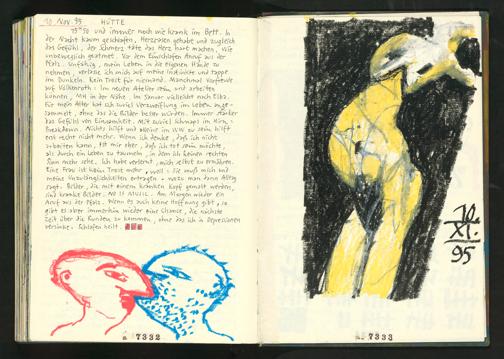 10. Nov. 95 HÜTTE
und immer noch wie krank im Bett. In
der Nacht kaum geschlafen, Herzrasen gehabt und zugleich
das Gefühl, der Schmerz täte das Herz hart machen. Wie
unbeweglich geatmet. Vor dem Einschlafen Anruf aus der
Pfalz. Unfähig, mein Leben in die eigenen Hände zu
nehmen, verlasse ich mich auf meine Instinkte und tappe
im Dunkeln. Kein Trost für niemand. Manchmal Vorfreude
auf Vollenroth: Im neuen Atelier sein und arbeiten
können, Mit in der Nähe. Im Januar vielleicht nach Elba.
Für mein Alter hat sich zuviel Verzweiflung im Leben ange-
sammelt, ohne das die Bilder besser würden. Immer stärker
das Gefühl von Einsamkeit. Mit zuviel Schnaps im Hirn.
Breakdown. Nichts hilft und allein im WW zu sein hilft
erst recht nicht mehr. Wenn ich denke, daß ich nicht
arbeiten kann, ist mir eher, daß ich tot sein möchte,
als durch ein Leben zu taumeln, in dem ich keinen rechten
Sinn mehr sehe. Ich habe verlernt, mich selbst zu ernähren.
Eine Frau ist kein Trost mehr, weil sie muß mich und
meine Unzulänglichkeiten ertragen - wozu man dann Alltag
sagt. Bilder, die mit einem kranken Kopf gemalt werden,
sind kranke Bilder. No is Music. Am Morgen wieder ein
Anruf aus der Pfalz. Wenn es auch keine Hoffnung gibt, so
gibt es aber immerhin wieder eine Chance, die nächste
Zeit über die Runden zu kommen, ohne das ich in Depressionen
versinke. Schlafen heilt.
7332
10.
XI.
95
7333